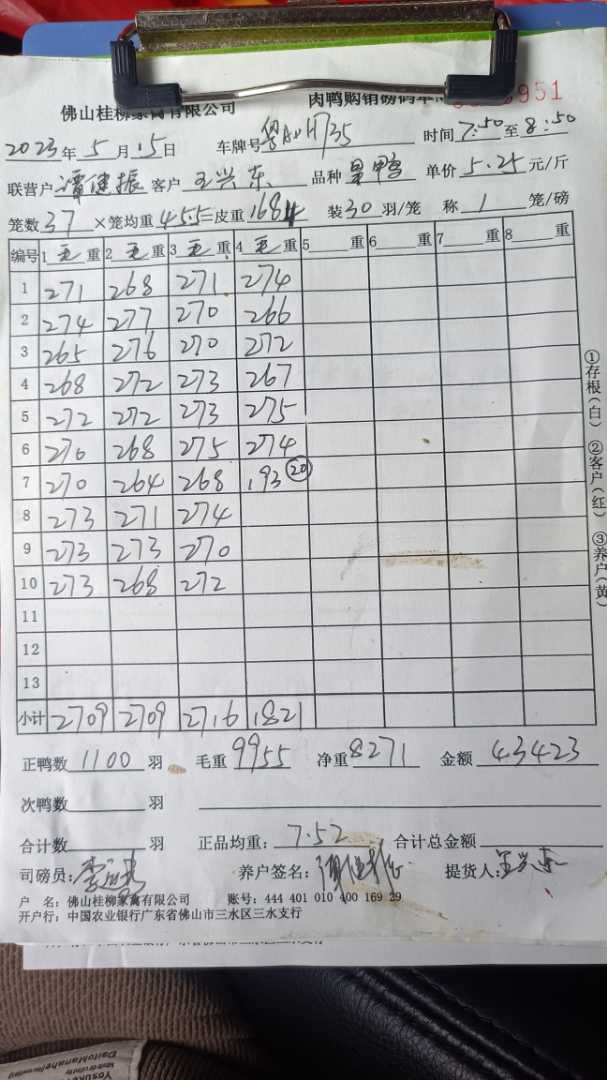 佛山桂柳家禽有限公司 肉鸭购销磅码单 951
2023年5月15日 车牌号 时间7:50至8:50
联营户谭健振 客户王兴东 品种 单价5.25元/斤
笼数37×笼均重45.5=皮重1684 装30羽/笼 称1笼/磅
编号 1毛重 2毛重 3毛重 4毛重 5重 6重 7重 8重
1 271 268 271 274
2 274 277 270 266
3 265 276 270 272
4 268 272 273 267
5 272 272 273 275
6 270 268 275 274
7 270 264 268 193 20
8 273 271 274
9 273 273 270
10 273 268 272
11
12
13
小计 2709 2709 2716 1821
正鸭数1100羽 毛重9955 净重8271 金额43423
次鸭数 羽
合计数 羽 正品均重:7.52 合计总金额
司磅员: 养户签名: 提货人:王兴东
户 名:佛山桂柳家禽有限公司 账号:444 401 010 400 169 29
开户行:中国农业银行广东省佛山市三水区三水支行
①存根(白) ②客户(红) ③养户(黄)
Yosuke
DaitoManahe